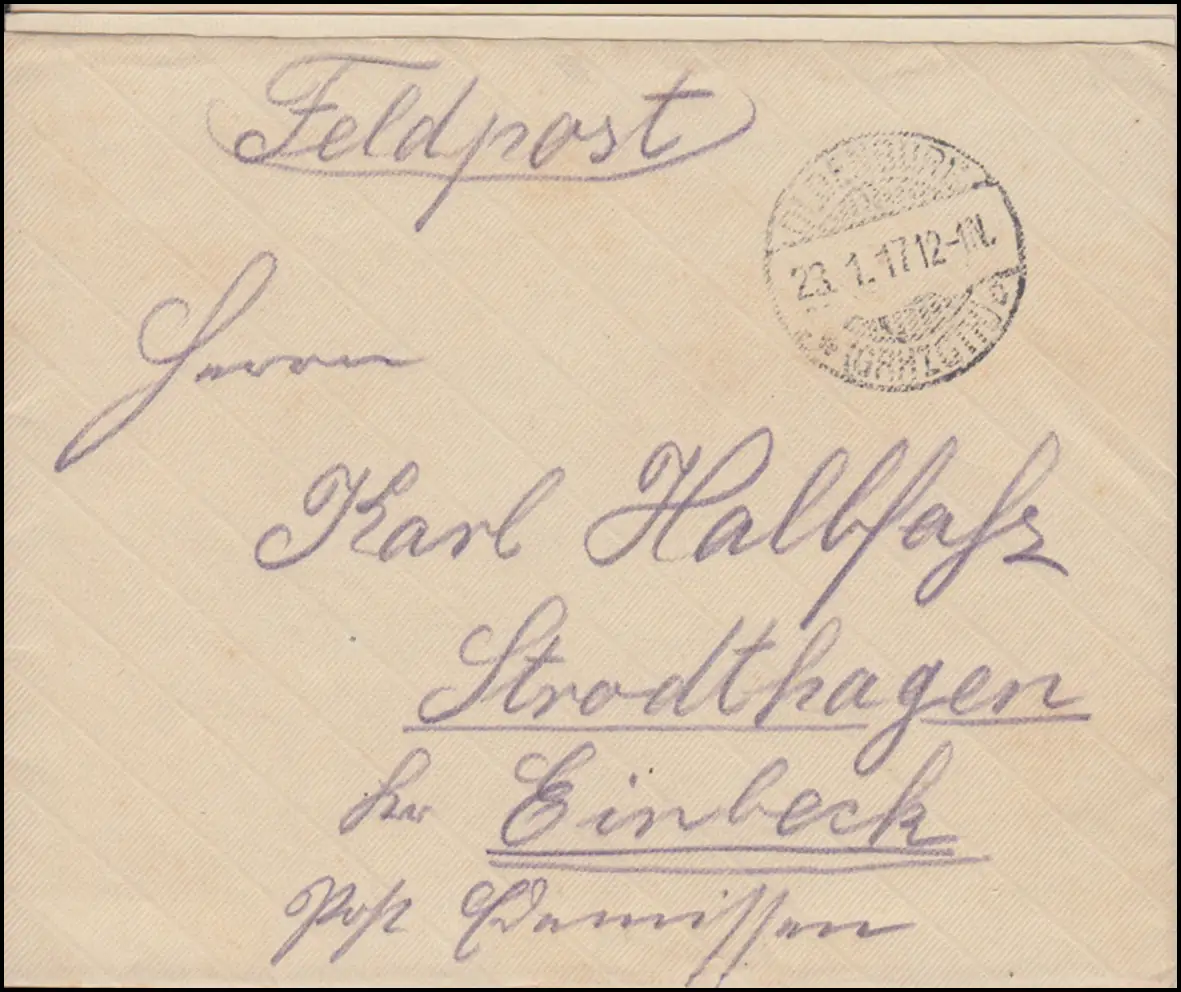 Feldpost
OLDENBURG
23. 1. 17 12-1N.
* (GRHZGTM) c
Herrn
Karl Halbfaß
Strodthagen
Kr Einbeck
Post Edemissen